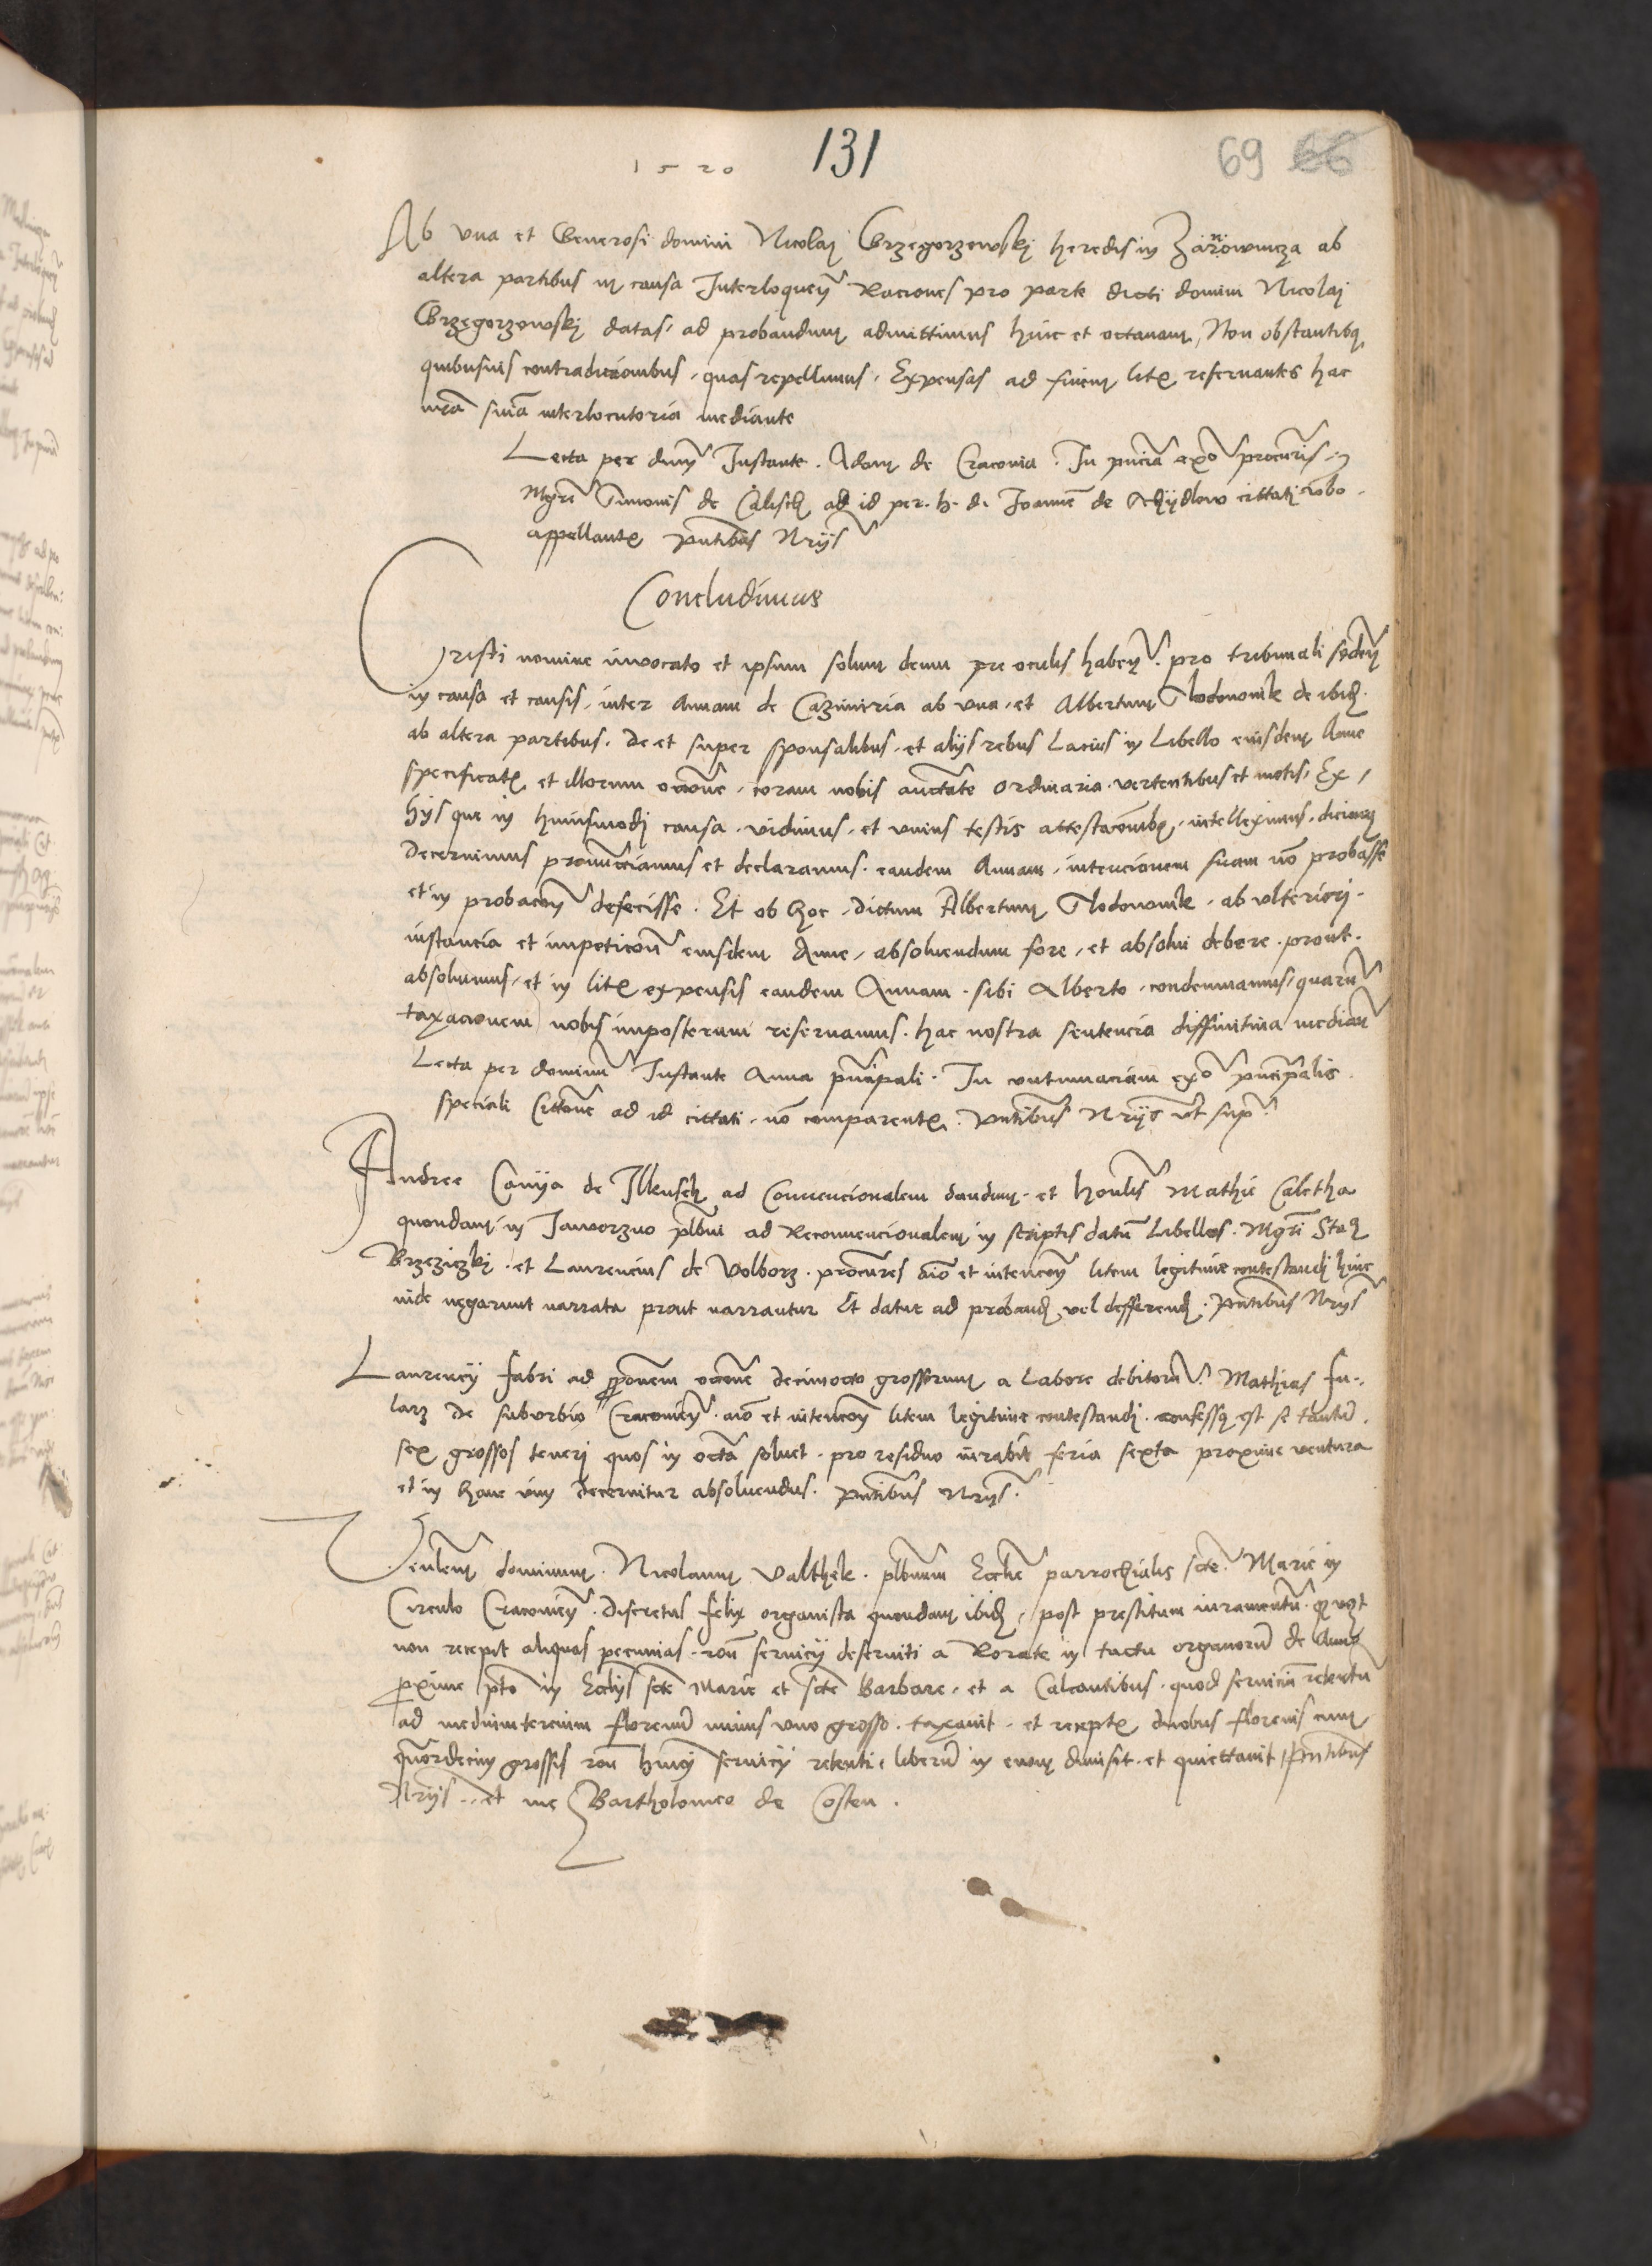 1520 131 69 66
Ab vna et Generosi domini Nicolai Grzegorzowskj heredis in Zarnowiecza ab
altera partibus in causa Interloquen Raciones pro parte dicti domini Nicolaj
Grzegorzowskj datas, ad probandum admittimus hinc et octauam, Non obstantibq
quibusuis contradiccionibus, quas repellimus, Expensas ad finem litis reseruantes hac
nrã sniã interlocutoria mediante
Lecta per dnm Instante. Adam de Cracouia. In pnciã exo procuris
Mgrj Simonis de Calisch ad id per. h. d. Joannẽ de citati verbo.
appellantis pntibus Nrijs
Concludimus
Cristi nomine inuocato et ipsum solum deum pre oculis haben. pro tribunali seden
in causa et causis, inter Annam de Cazimiria ab vna, et Albertum Wodownik de ibid.
ab altera partibus. De et super sponsalibus. et alijs rebus Lacius in Libello eiusdem Anne
specificatis et illorum occõne, coram nobis auctãte ordinaria. vertentibus et motis, Ex,
hijs que in huiusmodi causa. vidimus, et vnius testis attestacõnibq, intelleximus, dicimq
Decernimus pronũcciamus et declaramus. eandem Annam, intencionem suam nõ probasse
et in probacõn defecisse. Et ob hoc, dictum Albertum Wodownik, ab vlteriorj.
instancia et impeticõn eiusdem Anne, absoluendum fore, et absolui debere. prout.
absoluimus, et in litis expensis eandem Annam. sibi Alberto, condemnamus, quarũ
taxacionem nobis imposterum reseruamus. hac nostra sentencia diffinitiua median
Lecta per dominũ Instante Anna prĩcipali. In contumaciam exo prĩcipalis.
speciali Cittõne ad id cittati, nõ comparentis. Pntibus Nrijs vt sup
Andree Canya de Ilkusch ad Conuencionalem dandum. et honlis Mathie Caletha
quondam in Jaworzno plbni ad Reconuencionalem in scriptis datũ Libellos. Mgri Stah
Brzeziczki. et Laurencius de Wolborz. procures aio et intencõn litem legitime contestandj hinc
inde negarunt narrata prout narrantur Et datur ad proband vel defferend. Pntibus Nrijs
Laurencij Fabri ad pponem occone decimocto grossorum a Labore debitorũ. Mathias Fu,,
larz de suburbio Cracouien. aio et intencõn litem legitime contestandj. confessq est se tantũ.
sex grossos tenerj quos in octa soluet. pro residuo iurabit feria sexta proxime ventura
et in hanc vim decernitur absoluendus. Pntibus Nrijs.
Venlem dominum. Nicolaum Valthek. plbnum Ecclie parrochialis scte Marie in
Circulo Cracouien. discretus Felix organista quondam ibid, post prestitum iuramentũ.
non recepit aliquas pecunias. rõn seruicij deseruiti a Rorate in tactu organorũ de Anno
pxime pto in Ecclijs scte Marie et scte Barbare, et a Calcantibus. quod seruiciũ retentũ
ad mediumtercium florenũ minus vno grosso. taxauit. et receptis duobus florenis cum
quordecim grossis rõn huoi seruicij retenti, liberũ in euum dimisit. et quiettauit Pntibus
Nrijs.. et me Bartholomeo de Costen.